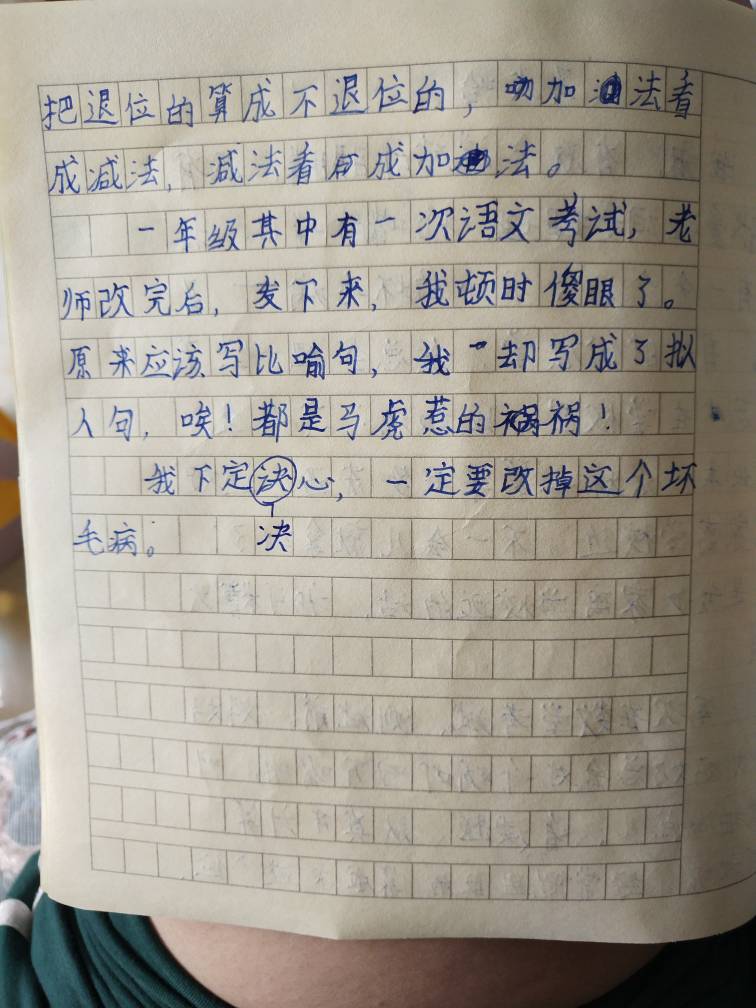 把退位的算成不退位的，加法看
成减法，减法看成加法。
一年级其中有一次语文考试，老
师改完后，发下来，我顿时傻眼了。
原来应该写比喻句，我却写成了拟
人句，唉！都是马虎惹的祸！
我下定决心，一定要改掉这个坏
毛病。
决